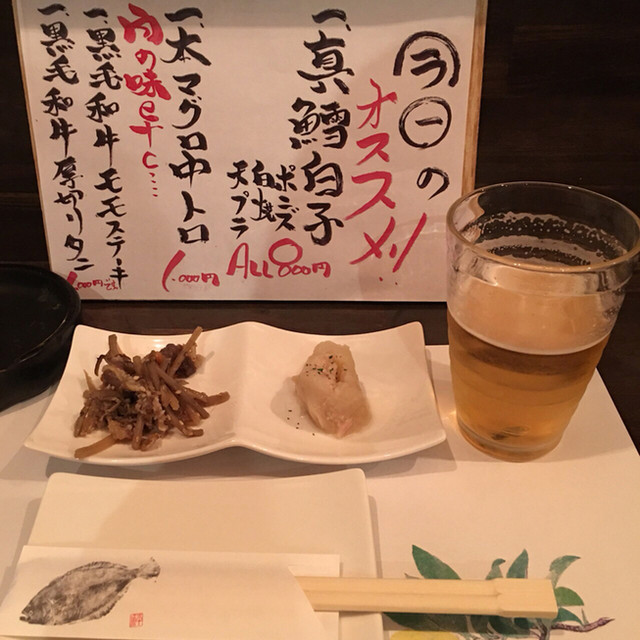 今日の
オススメ!
一、真鱈白子
ポンズ
白焼
天プラ
ALL 800円
一、本マグロ中トロ
1,000円
肉の味etc...
一、黒毛和牛モモステーキ
一、黒毛和牛厚切りタン
1,000円です。